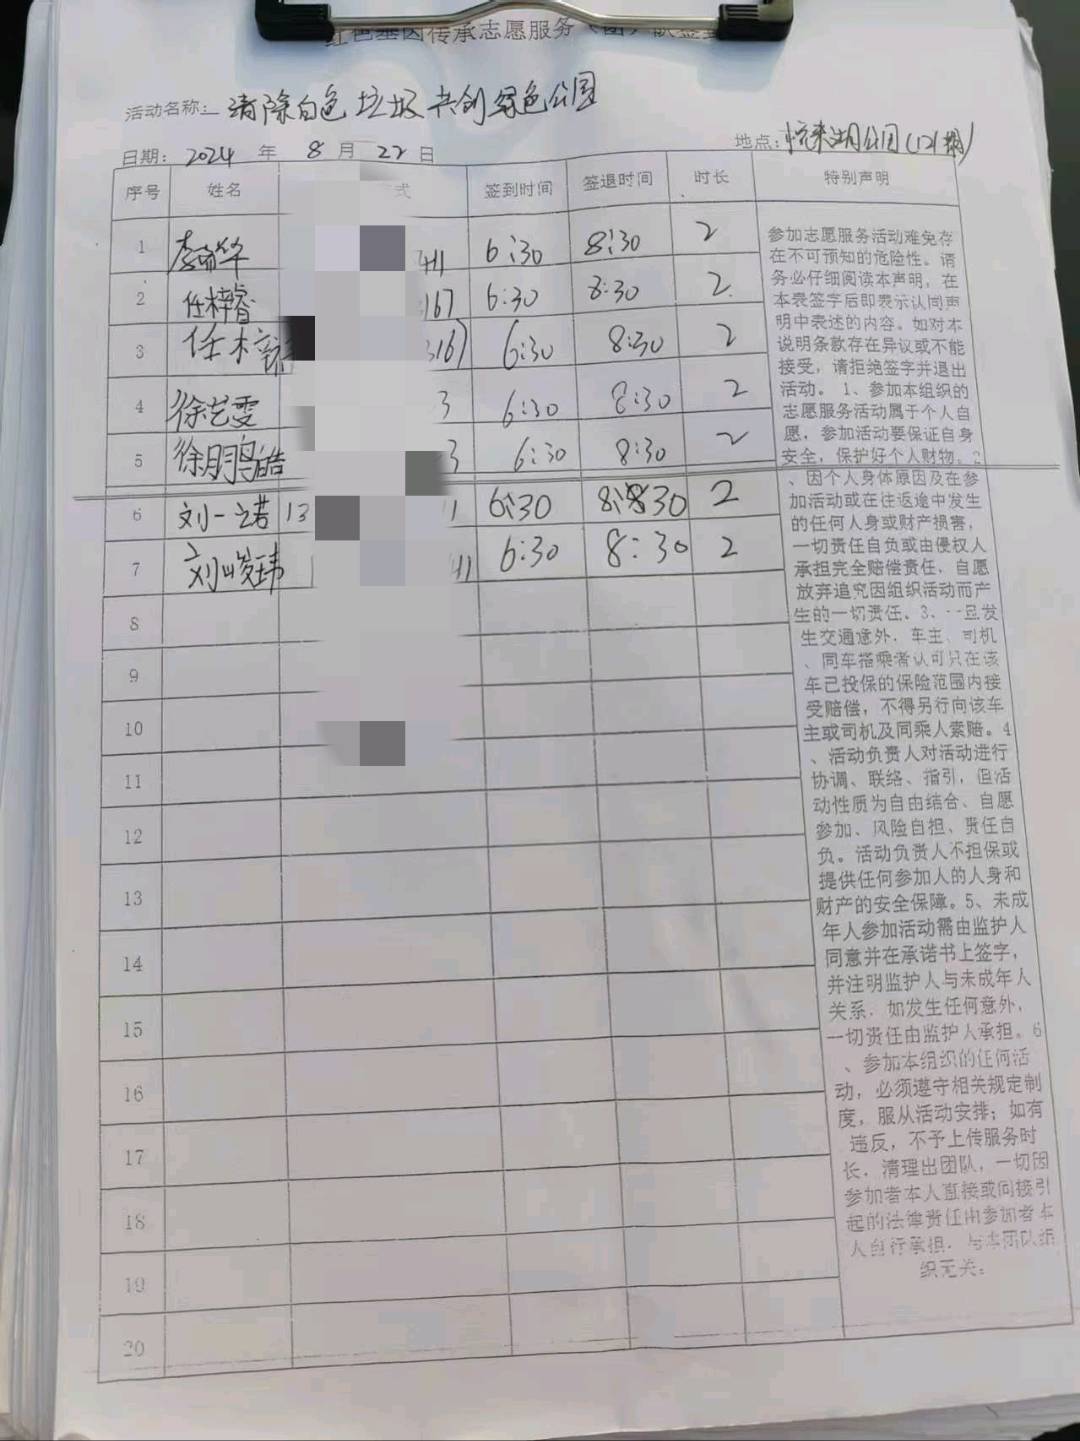 红色基因传承志愿服务（团）队签到
活动名称：清除白色垃圾 共创绿色公园
日期：2024年8月22日 地点：悦来湖公园（121期）
序号 姓名 式 签到时间 签退时间 时长 特别声明
1 411 6:30 8:30 2
2 任梓睿 3167 6:30 8:30 2
3 任木 3167 6:30 8:30 2
4 徐艺雯 3 6:30 8:30 2
5 徐鹏皓 3 6:30 8:30 2
6 刘一诺 13 1 6:30 8:30 2
7 刘峻玮 411 6:30 8:30 2
8
9
10
11
12
13
14
15
16
17
18
19
20
参加志愿服务活动难免存
在不可预知的危险性。请
务必仔细阅读本声明，在
本表签字后即表示认同声
明中表述的内容。如对本
说明条款存在异议或不能
接受，请拒绝签字并退出
活动。1、参加本组织的
志愿服务活动属于个人自
愿，参加活动要保证自身
安全，保护好个人财物。2
、因个人身体原因及在参
加活动或在往返途中发生
的任何人身或财产损害，
一切责任自负或由侵权人
承担完全赔偿责任，自愿
放弃追究因组织活动而产
生的一切责任。3、一旦发
生交通意外，车主、司机
、同车搭乘者认可只在该
车已投保的保险范围内接
受赔偿，不得另行向该车
主或司机及同乘人索赔。4
、活动负责人对活动进行
协调、联络、指引，但活
动性质为自由结合、自愿
参加、风险自担、责任自
负。活动负责人不担保或
提供任何参加人的人身和
财产的安全保障。5、未成
年人参加活动需由监护人
同意并在承诺书上签字，
并注明监护人与未成年人
关系，如发生任何意外，
一切责任由监护人承担。6
、参加本组织的任何活
动，必须遵守相关规定制
度，服从活动安排；如有
违反，不予上传服务时
长，清理出团队，一切因
参加者本人直接或间接引
起的法律责任由参加者本
人自行承担，与本团队组
织无关。